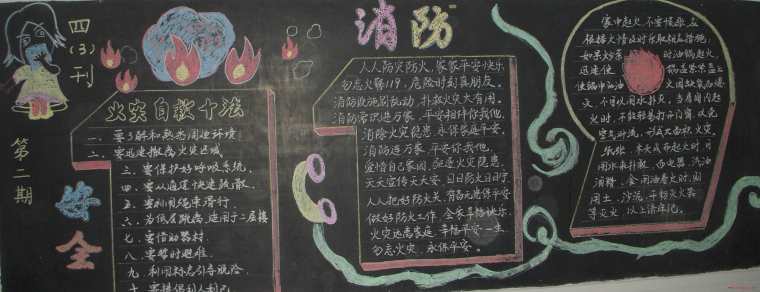 四(3)刊
第二期
安全
消防
火灾自救十法
一、要了解和熟悉周围环境
二、要迅速撤离火灾区域
三、要保护好呼吸系统。
四、要从通道快速疏散。
五、要利用绳索滑行。
六、为低层跳离，适用于二层楼
七、要借助器材。
八、要暂时避难。
九、利用标志引导脱险。
十、要提倡利人利己
人人防灾防火，家家平安快乐
勿忘火警119，危险时刻真朋友。
消防设施别乱动，扑救火灾大有用。
消防常识进万家，平安相伴你我他。
消除火灾隐患，永保家庭平安。
消防进万家，平安你我他。
爱惜自己家园，驱逐火灾隐患。
天天宣传天天安，日日防火日日宁。
人人把好防火关，
做好防火工作，全家幸福快乐。
火灾远离家庭，幸福平安一生
勿忘火灾，永保平安。
家中起火，不要慌张，应
根据火情及时采取相应措施：
如果炒菜时油锅起火，
迅速使锅盖紧盖上
使锅中油油火因缺氧而熄
灭，不可以用水扑灭。当房间内起
火时，不能轻易打开门窗，以免
空气对流，形成大面积火灾。
纸张、木头或布起火时，可
用水来扑救，而电器、汽油
酒精、食用油着火时，则
用土、沙泥、干粉灭火器
等灭火，以上请牢记。